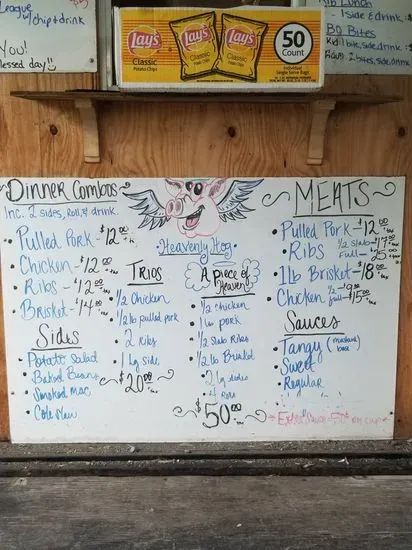 League
w/chip+drink
You!
blessed day!!
Lay's
Classic
Potato Chips
Lay's
Classic
Lay's
Classic
50
Count
Individual
Single Serve Bags
Lunch
- 1side & drink
BO Bites
Kid 1 bite, side, drink
2 bites, side, drink
Dinner Combos
Inc. 2 sides, roll, & drink.
• Pulled Pork - $12.00 +tax
• Chicken - $12.00 +tax
• Ribs - $12.00 +tax
• Brisket - $14.00 +tax
Sides
• Potato Salad
• Baked Beans
• Smoked Mac
• Cole Slaw
Heavenly Hog
Trios
• 1/2 Chicken
• 1/2 lb pulled pork
• 2 Ribs
• 1 lg side
$20.00 +tax
A piece of
Heaven
• 1/2 chicken
• 1 lb pork
• 1/2 slab Ribs
• 1/2 lb Brisket
• 2 lg sides
• 4 rolls
$50.00
MEATS
• Pulled Pork - $12.00
• Ribs 1/2 slab - $17.00 +tax
Full - $25.00 +tax
• 1lb Brisket - $18.00 +tax
• Chicken 1/2 - $9.00
full - $15.00 +tax
Sauces
• Tangy (mustard base)
• Sweet
• Regular
• Extra Sauce - 50¢ an cup